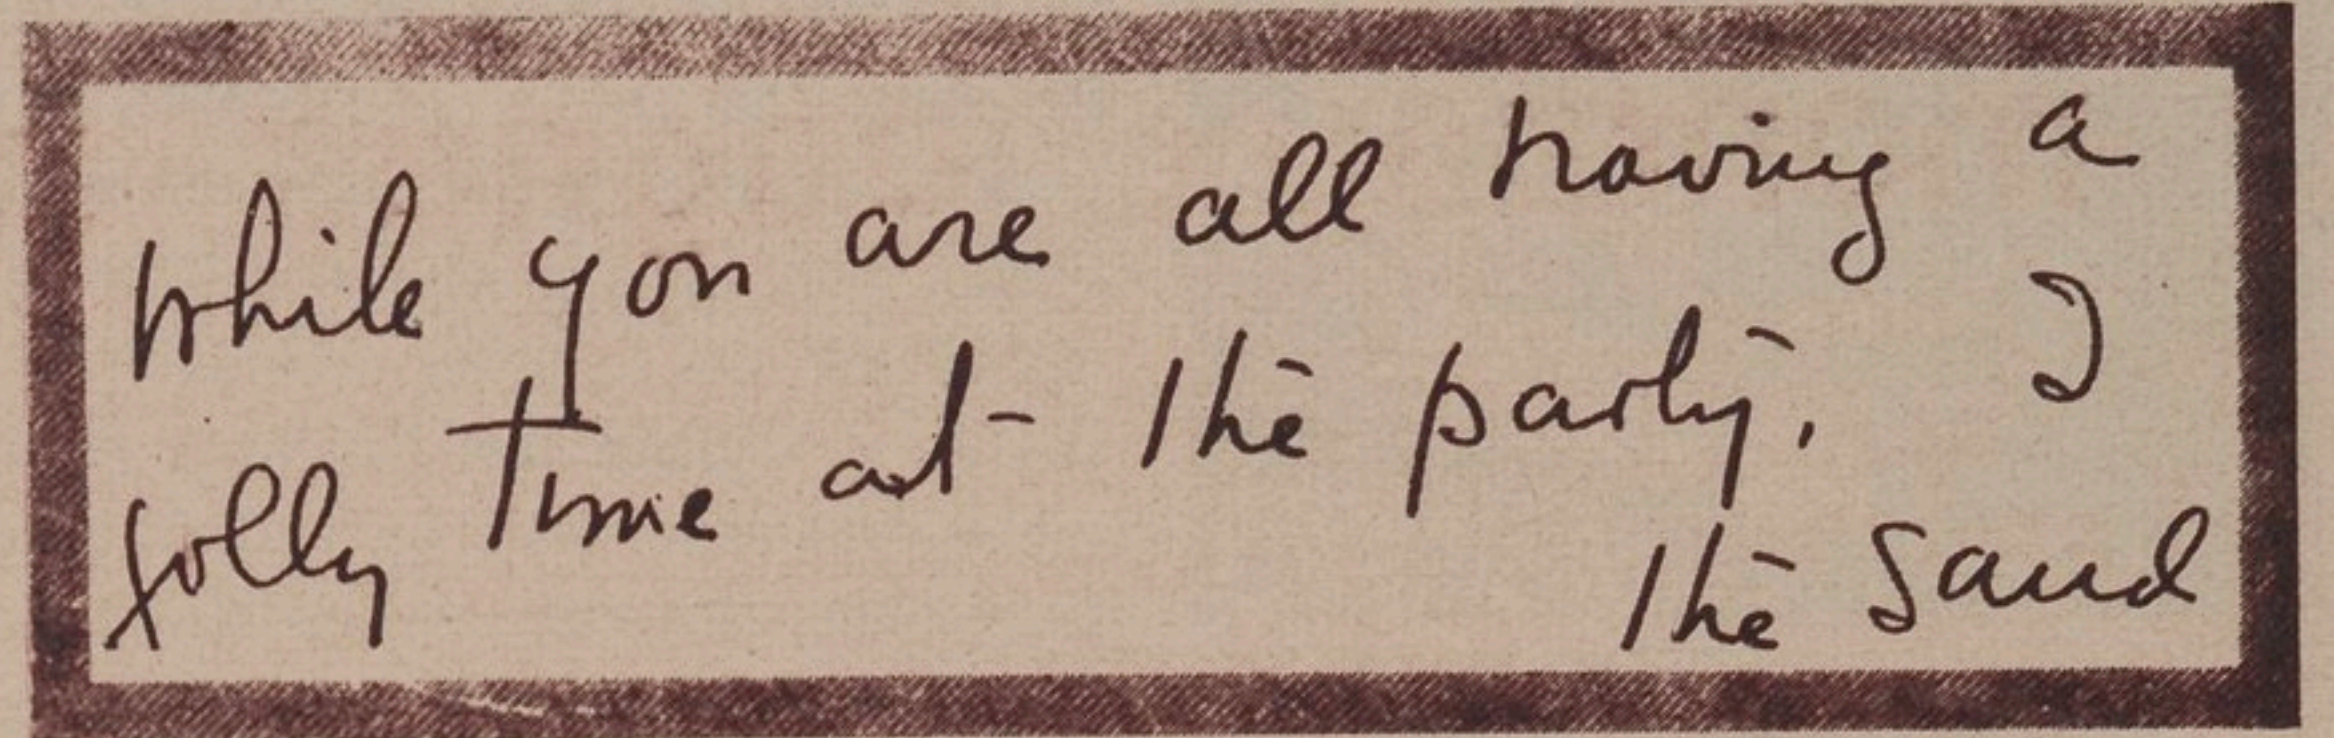 while you are all having a
jolly time at the party, I
the sand